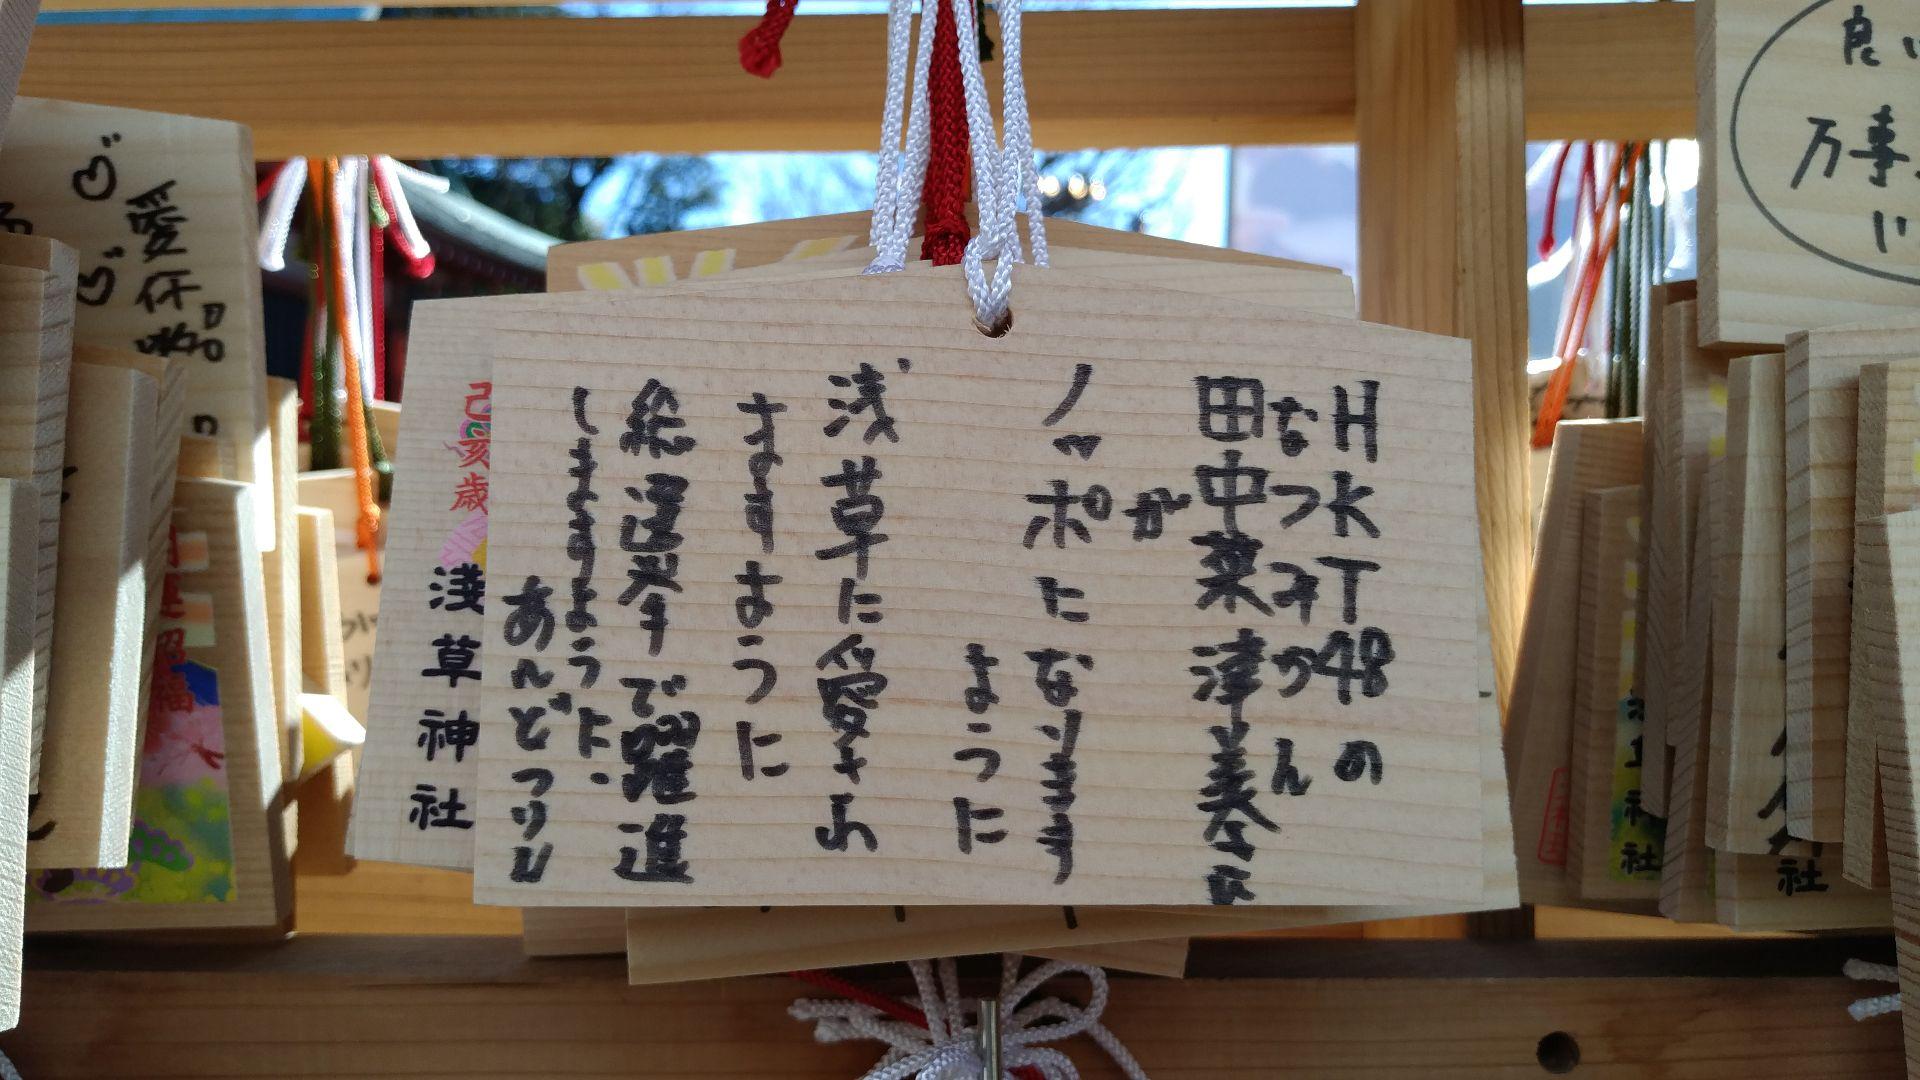 良い
万事
HKT48の
なつみかん
田中菜津美
が
ノッポになります
ように
浅草に愛され
ますように
総選挙で躍進
しますように、
己亥歳
淺草神社
愛